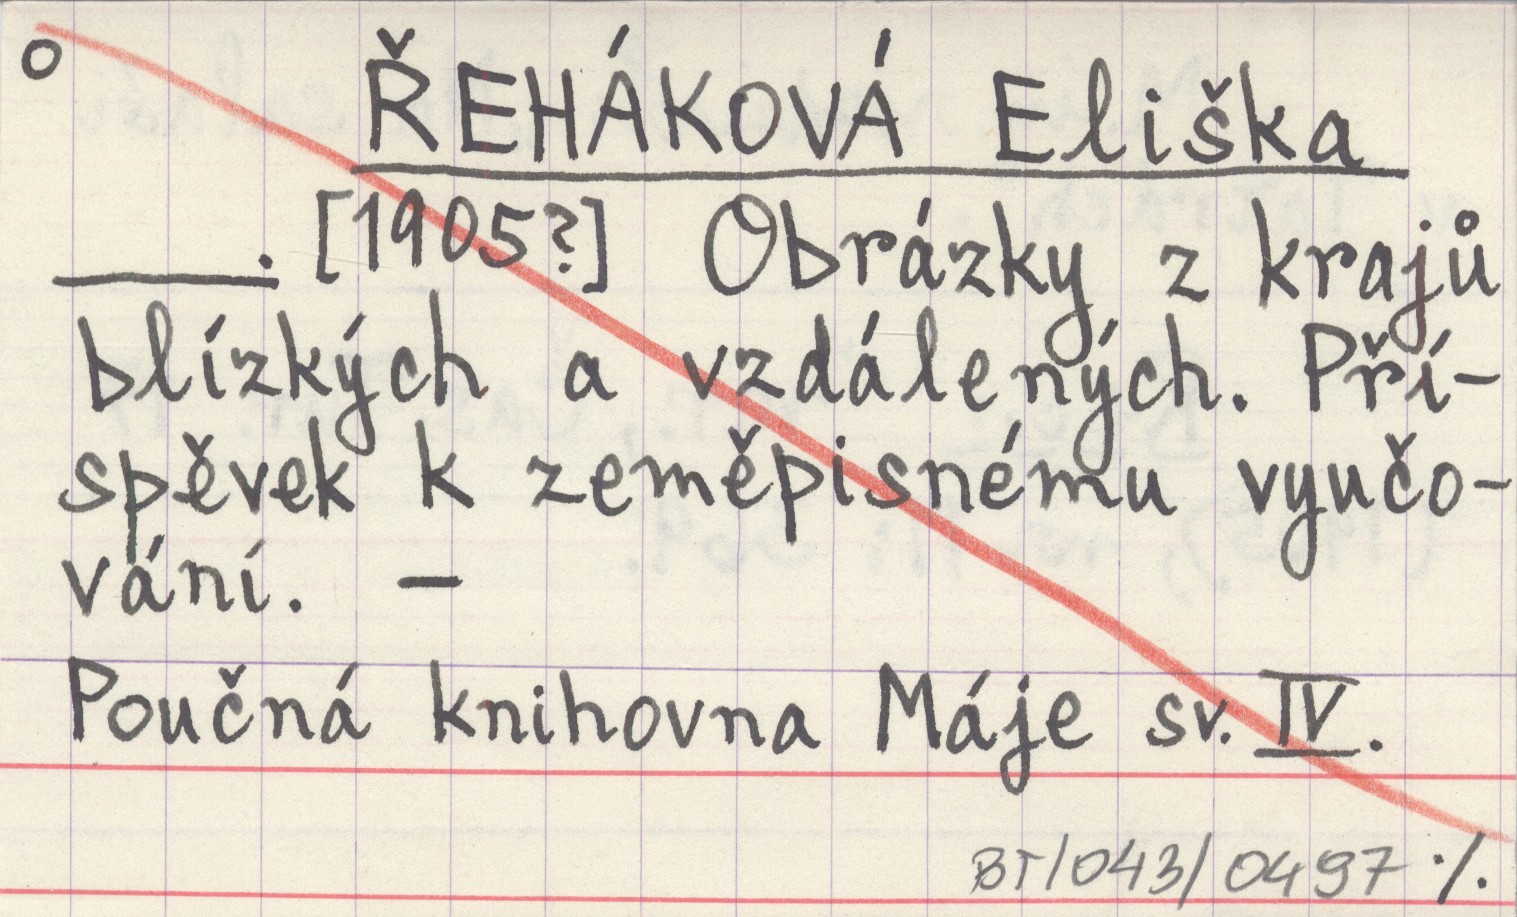 o ŘEHÁKOVÁ Eliška
____. [1905?] Obrázky z krajů
blízkých a vzdálených. Pří-
spěvek k zeměpisnému vyučo-
vání. –
Poučná knihovna Máje sv. IV.
BT/043/0497 ·/.